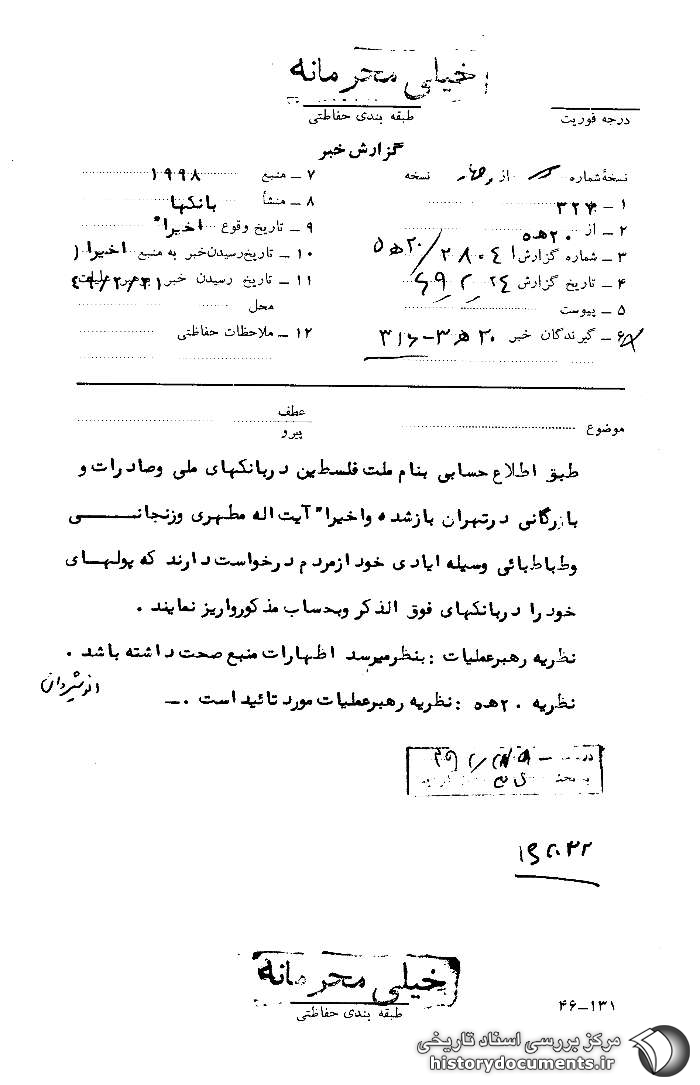 خیلی محرمانه
طبقه بندی حفاظتی
درجه فوریت
گزارش خبر
نسخهٔ شماره از چهار نسخه
۱ ـ ۳۲۴
۲ ـ از ۲۰ ﻫ ۵
۳ ـ شماره گزارش
۴ ـ تاریخ گزارش
۵ ـ پیوست
۶ ـ گیرندگان خبر ۳۱۶ ـ ۲۰ ﻫ ۳
۷ ـ منبع ۱۹۹۸
۸ ـ منشأ بانکها
۹ ـ تاریخ وقوع اخیرا"
۱۰ ـ تاریخ رسیدن خبر به منبع اخیرا
۱۱ ـ تاریخ رسیدن خبر برهبر عملیات ۴۹/۲/۲۱
محل
۱۲ ـ ملاحظات حفاظتی
موضوع
عطف
پیرو
طبق اطلاع حسابی بنام ملت فلسطین دربانکهای ملی وصادرات و
بازرگانی درتهران بازشده واخیرا" آیت اله مطهری وزنجانــــی
وطباطبائی وسیله ایادی خود ازمردم درخواست دارند که پولهای
خود را دربانکهای فوق الذکر وبحساب مذکورواریز نمایند .
نظریه رهبرعملیات : بنظرمیرسد اظهارات منبع صحت داشته باشد .
نظریه ۲۰ ﻫ ۵ : نظریه رهبرعملیات مورد تائید است . ــ
انوشیروان
خیلی محرمانه
طبقه بندی حفاظتی
۴۶ـ۱۳۱
مرکز بررسی اسناد تاریخی
historydocuments.ir